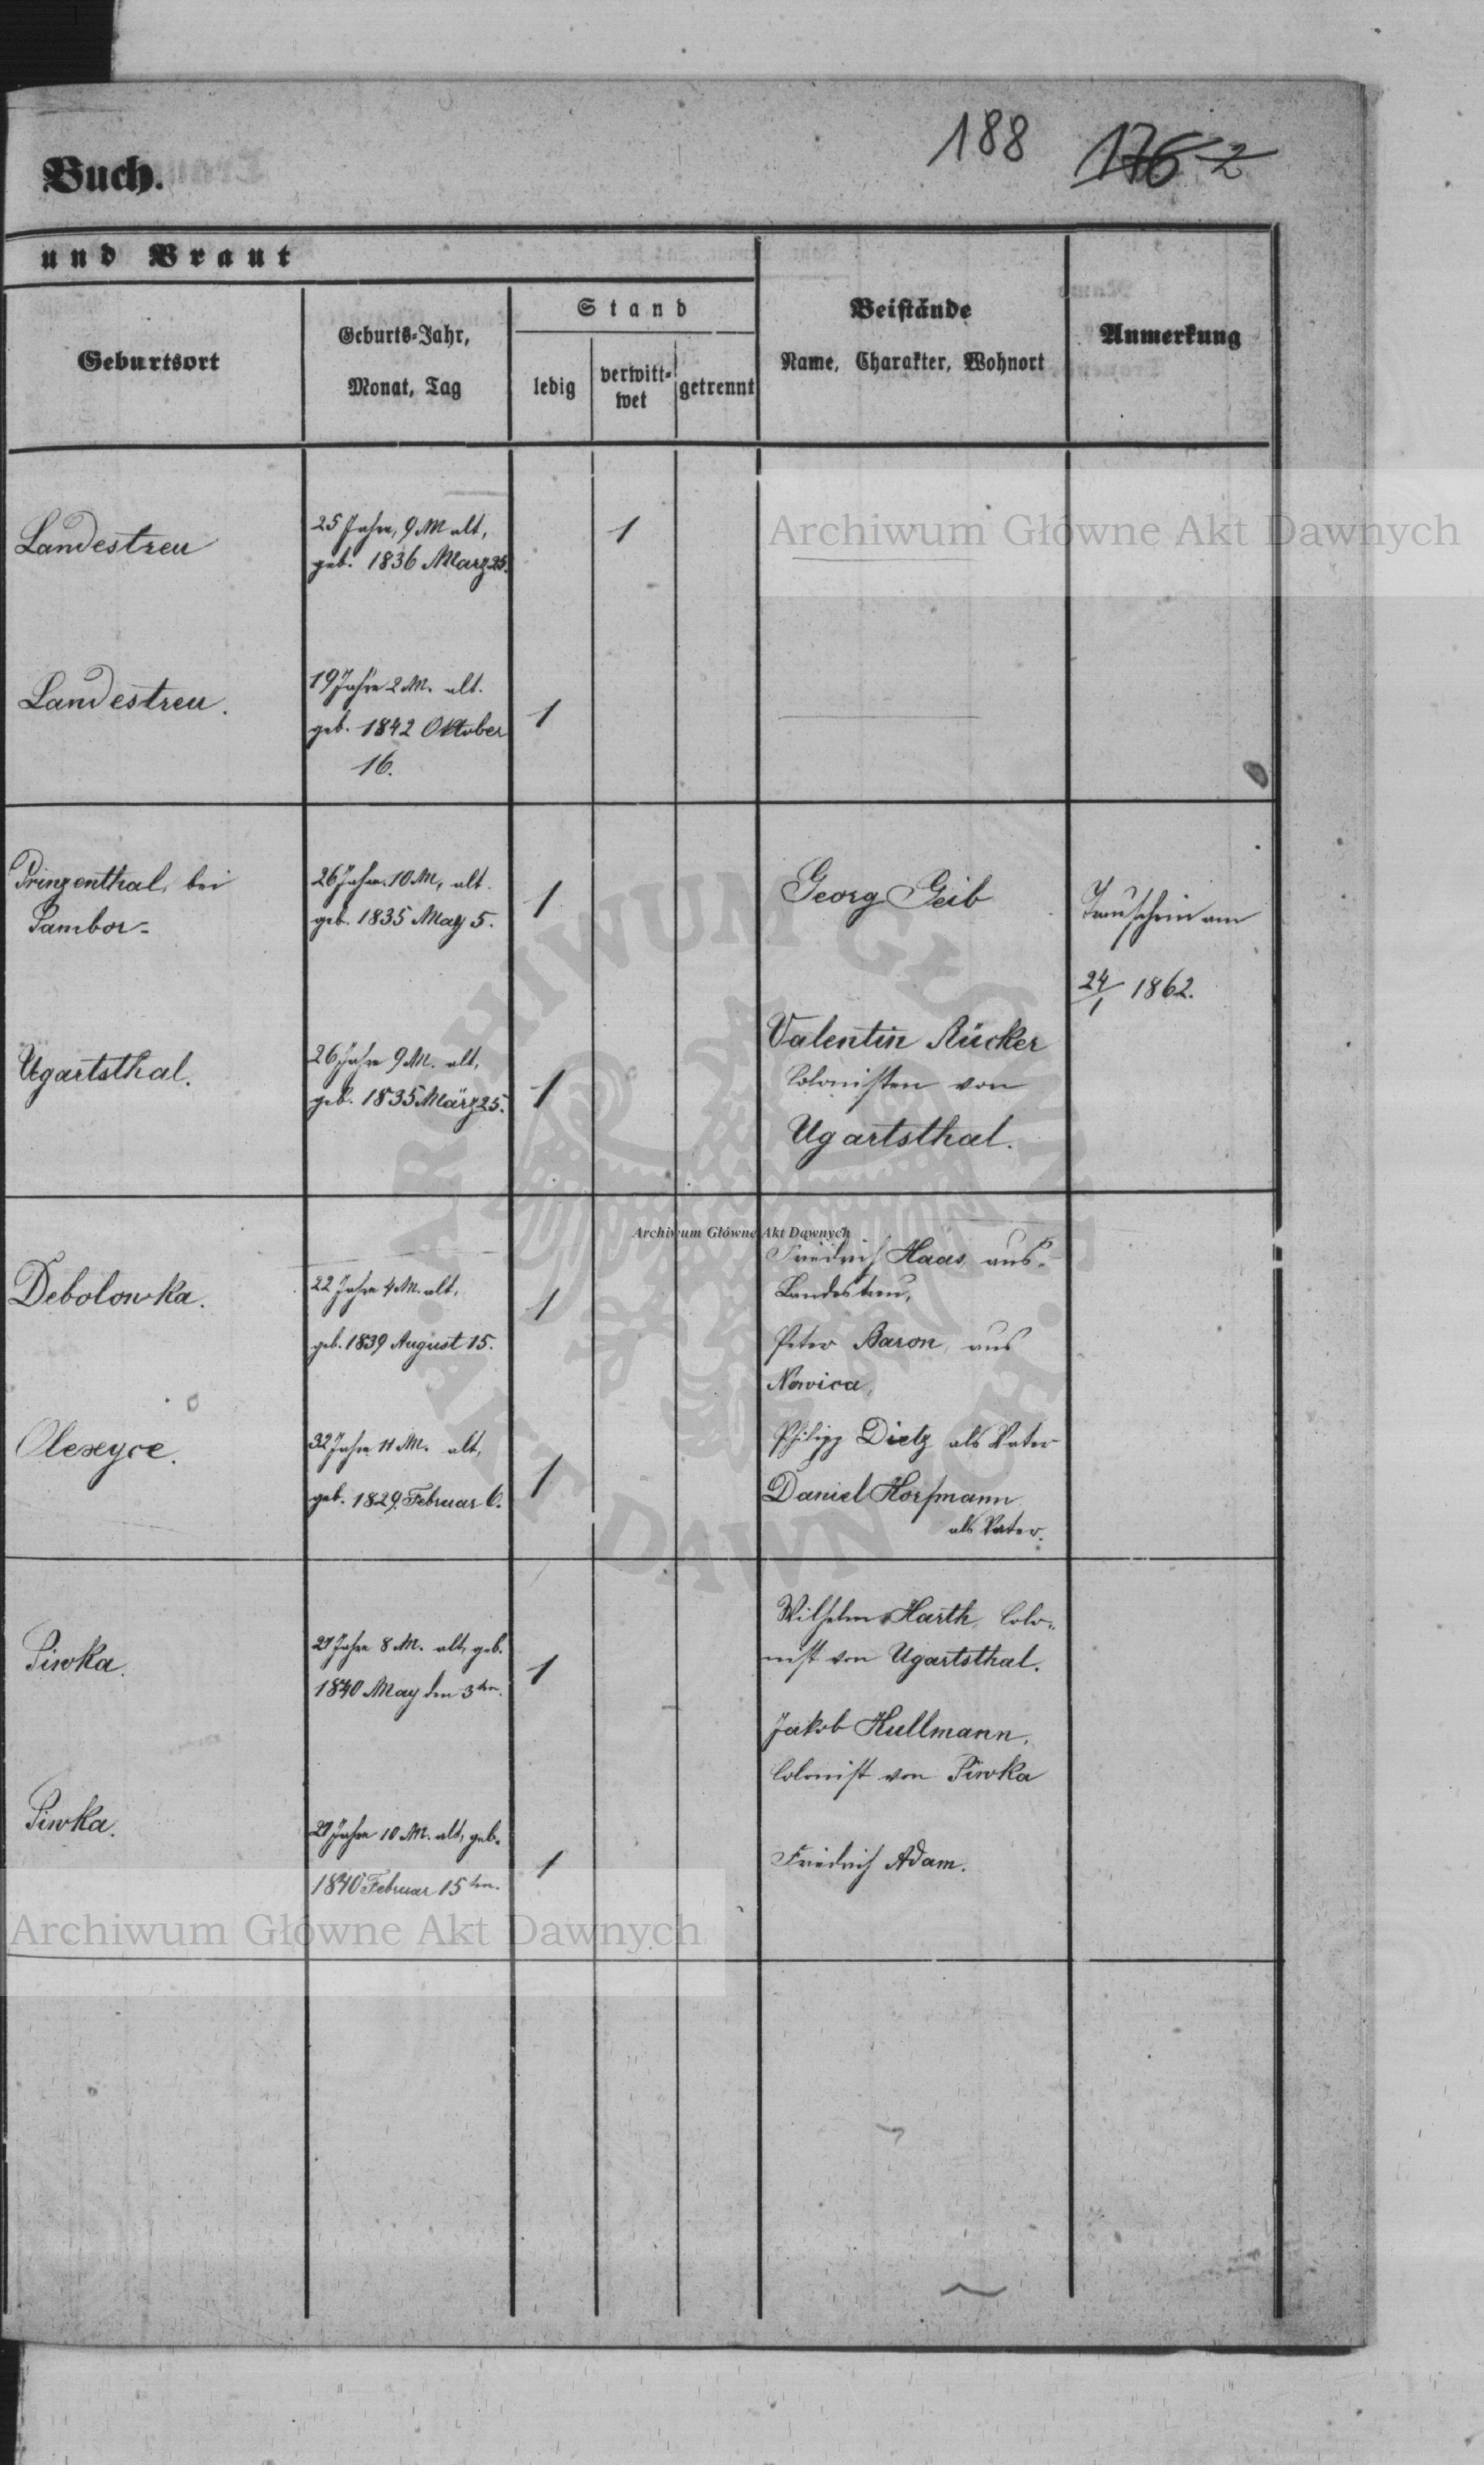 188 176 2
Buch.
und Braut
Geburtsort
Geburts-Jahr,
Monat, Tag
Stand
ledig
verwitt-
wet
getrennt
Beistände
Name, Charakter, Wohnort
Anmerkung
Landestreu
25 Jahre, 9 M alt,
geb. 1836 März 25.
1
Archiwum Główne Akt Dawnych
Landestreu.
19 Jahre 2 M. alt.
geb. 1842 Oktober
16.
1
Prinzenthal, bei
Sambor-
26 Jahre 10 M, alt.
geb. 1835 May 5.
1
Georg Geib
Trauschein am
24/1 1862.
Ugartsthal.
26 Jahre 9 M. alt,
geb. 1835 März 25.
1
Valentin Rücker
Colonisten von
Ugartsthal.
Archiwum Główne Akt Dawnych
Debolowka.
22 Jahre 4 M. alt,
geb. 1839 August 15.
1
Friedrich Haas aus
Landestreu,
Peter Baron, aus
Nowica,
Olexyce.
32 Jahre 11 M. alt,
geb. 1829. Februar 6.
1
Philipp Dietz als Vater
Daniel
als Vater.
Siwka.
21 Jahre 8 M. alt, geb.
1840 May den 3ten.
1
Wilhelm Harth, Colo-
nist von Ugartsthal.
Jakob Kullmann,
Colonist von Siwka
Siwka.
21 Jahre 10 M. alt, geb.
1840 Februar 15ten.
1
Friedrich Adam.
Archiwum Główne Akt Dawnych
ARCHIWUM GŁÓWNE
AKT DAWNYCH